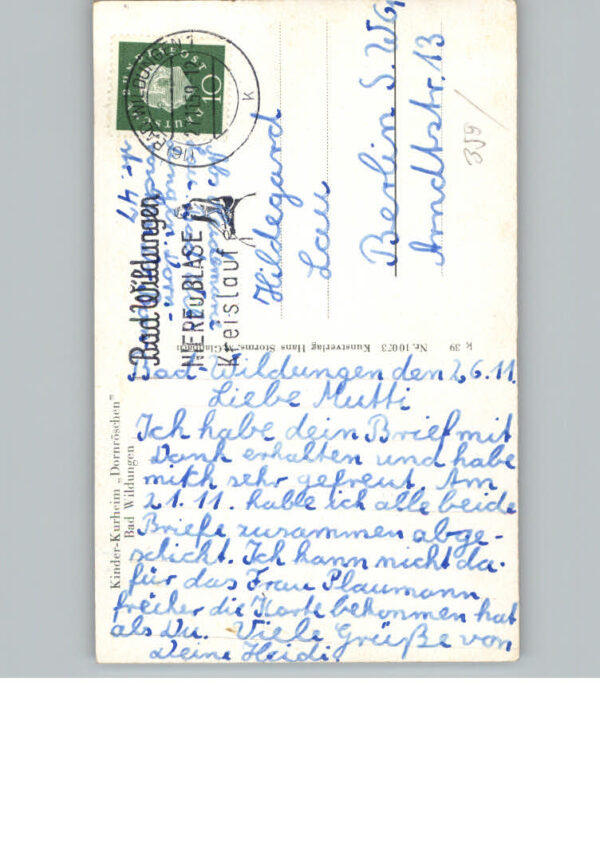 Bad-Wildungen den 26.11.
Liebe Mutti
Ich habe dein Brief mit
Dank erhalten und habe
mich sehr gefreut. Am
21.11. habe ich alle beide
Briefe zusammen abge-
schickt. Ich kann nicht da-
für das Frau Plaumann
früher die Karte bekommen hat
als Du. Viele Grüße von
Deine Heidi.
Hildegard
Lau
Berlin S.W.
Arndtstr. 13
359/
Kinder-Kurheim „Dornröschen"
Bad Wildungen
K 39 Kunstverlag Hans Storms, M.Gladbach Nr. 10073
DEUTSCHE BUNDESPOST
10
BAD WILDUNGEN 1
k
Bad Wildungen
NIERE u BLASE
Kreislauf